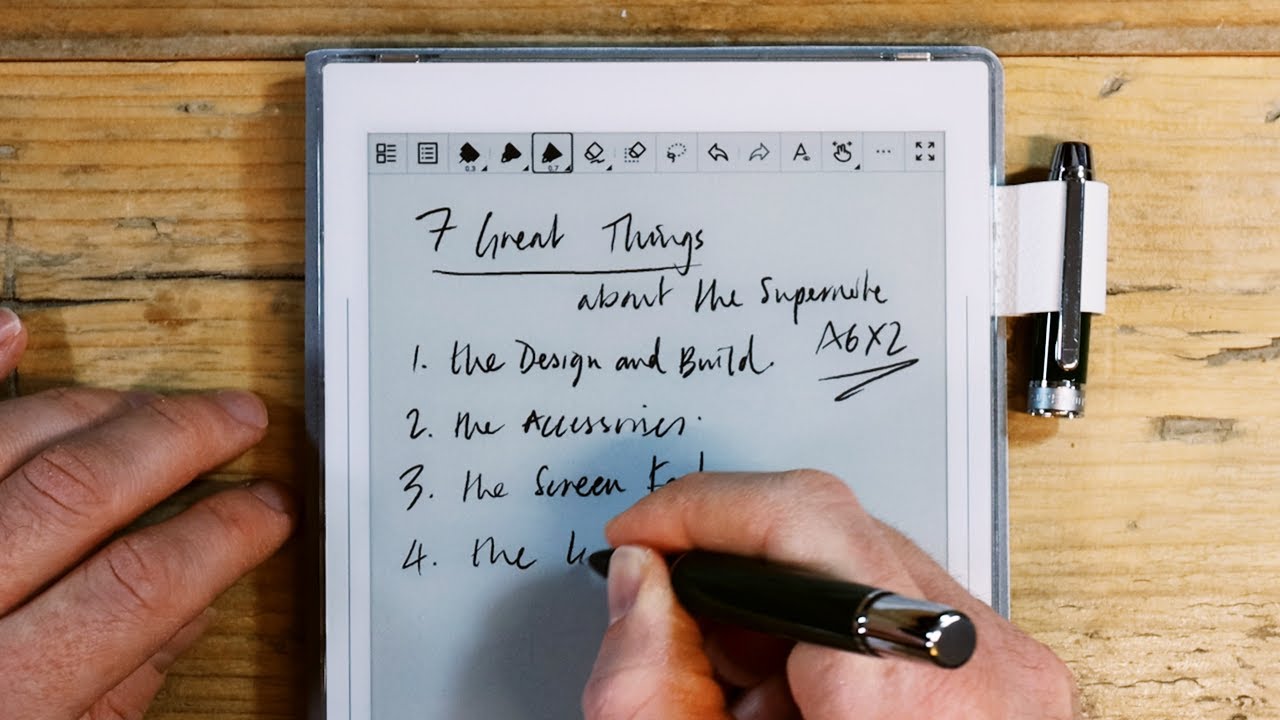 0.3 0.7
7 Great Things
about the Supernote
A6X2
1. the Design and Build.
2. the Accessories.
3. the Screen
4. the